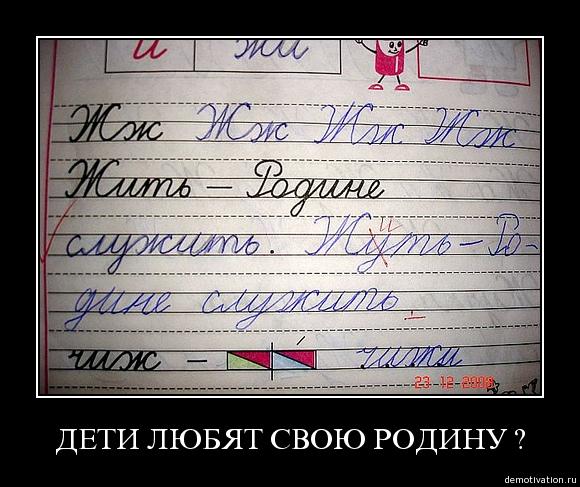 и жи
Жж Жж Жж Жж
Жить – Родине
служить. Жуить – Ро-
дине служить
чиж – чижи
23 12 2008
ДЕТИ ЛЮБЯТ СВОЮ РОДИНУ ?
demotivation.ru